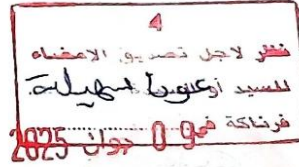 4
نظر لاجل تصديق الامضاء
للسيد أو عنوبا سهيلة
فرناكة في 09 جوان 2025